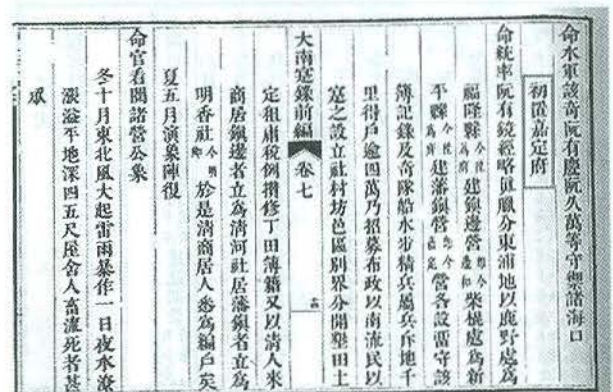 命水軍該奇阮有慶阮久萬等守禦諸海口
初置嘉定府
命統率阮有鏡經略眞臘分東浦地以鹿野處爲
福隆縣今陞爲府建鎮邊營即今邊和柴棍處爲新
平縣今陞爲府建藩鎮營即今嘉定營各設留守該
簿記錄及奇隊船水步精兵屬兵斥地千
里得戶逾四萬乃招募布政以南流民以
寔之設立社村坊邑區別界分開墾田土
大南寔錄前編 卷七
定租庸稅例攢修丁田簿籍又以淸人來
商居鎮邊者立爲淸河社居藩鎮者立爲
明香社今明鄉於是淸商居人悉爲編戶矣
夏五月演象陣復
命官看閱諸營公象
冬十月東北風大起雷雨暴作一日夜水潦
漲溢平地深四五尺屋舍人畜流死者甚
眾